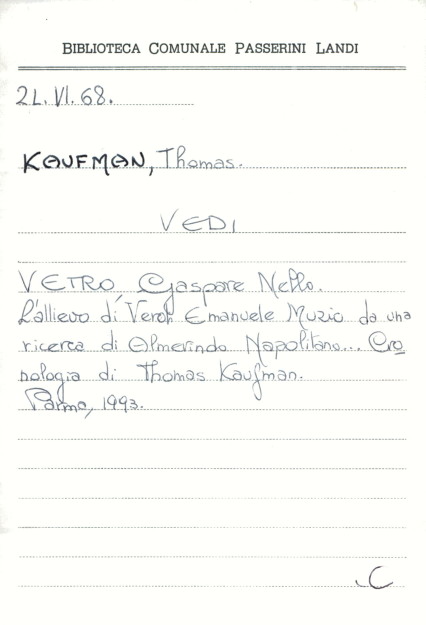 BIBLIOTECA COMUNALE PASSERINI LANDI
2L.VI.68.
KAUFMAN, Thomas.
VEDI
VETRO, Gaspare Nello.
L'allievo di Verdi Emanuele Muzio da una
ricerca di Almerindo Napolitano... Cro
nologia di Thomas Kaufman.
Parma, 1993.
C